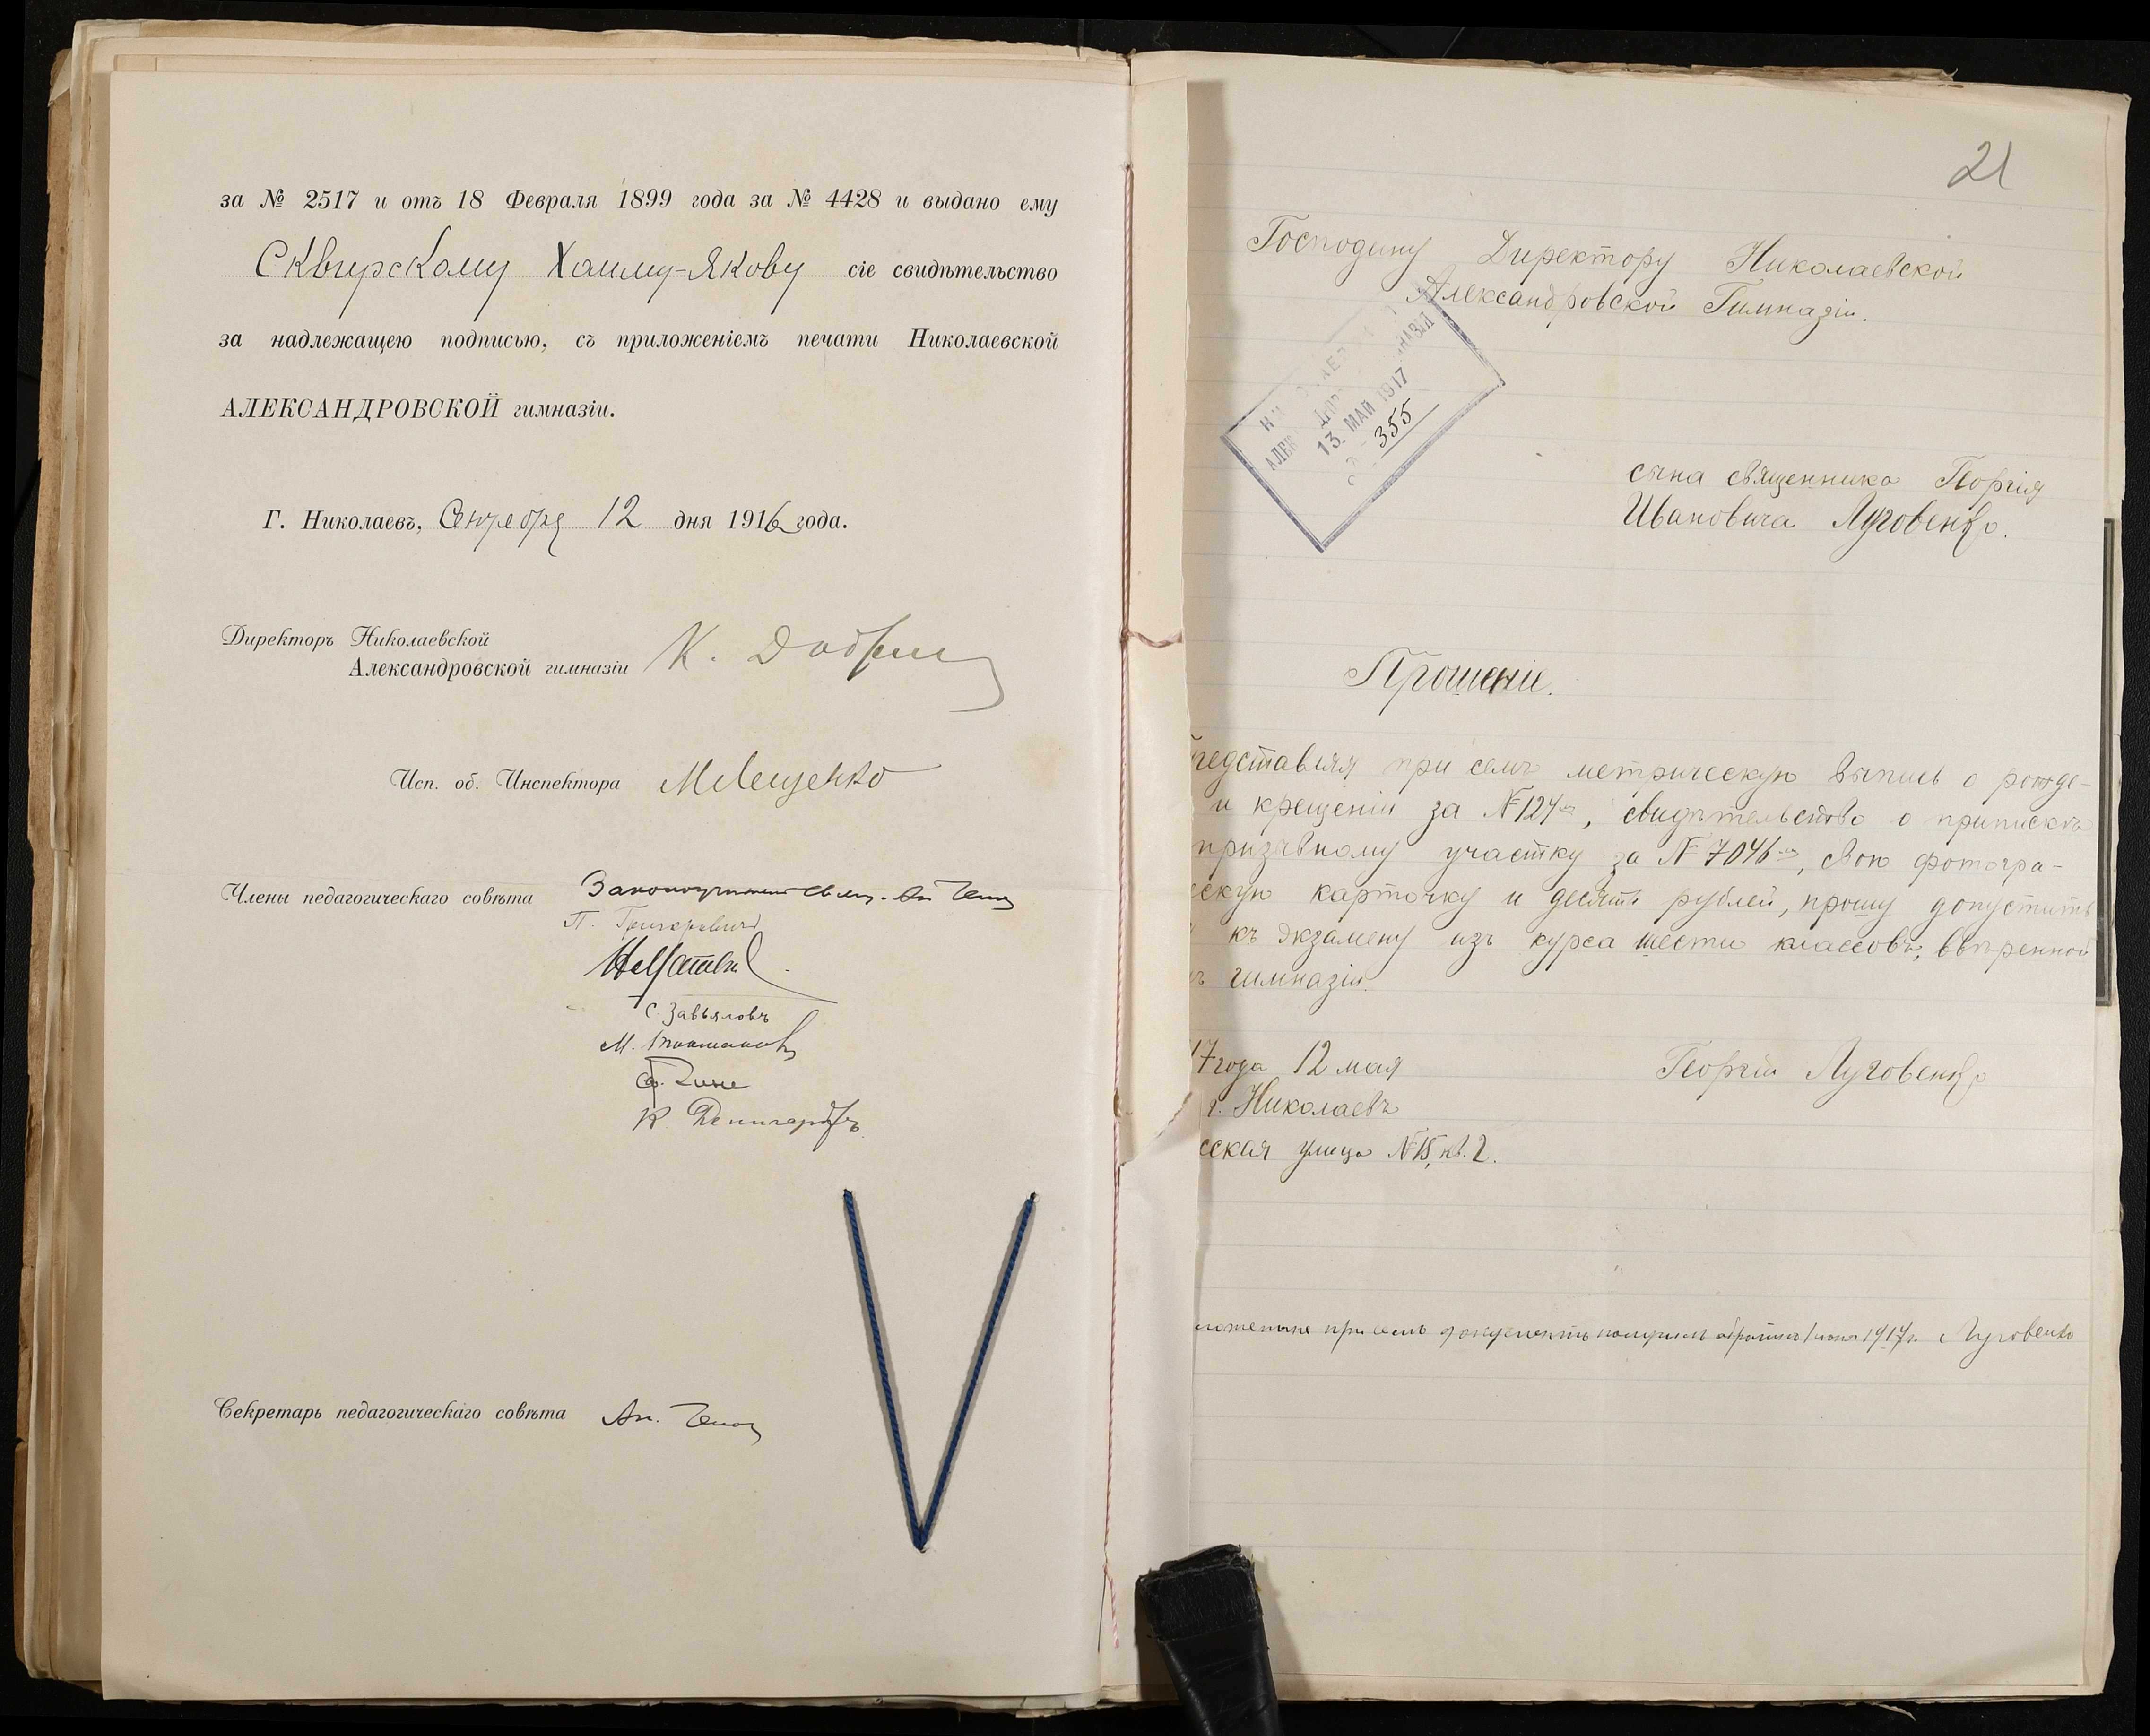 за № 2517 и отъ 18 Февраля 1899 года за № 4428 и выдано ему
Сквирскому Хаиму-Якову сіе свидѣтельство
за надлежащею подписью, съ приложеніемъ печати Николаевской
АЛЕКСАНДРОВСКОЙ гимназіи.
Г. Николаевъ, Сентября 12 дня 1916 года.
Директоръ Николаевской
Александровской гимназіи К.
Исп. об. Инспектора МЛещенко
Члены педагогическаго совѣта Законоучитель
П. Григоревичъ
С. Завьяловъ
М.
К.
Секретарь педагогическаго совѣта Ап.
21
Господину Директору Николаевской
Александровской Гимназіи.
13. МАЙ 1917
355
сына священника Георгія
Ивановича Луговенко.
Прошеніе.
редставляя при семъ метрическую выпись о рожде-
и крещеніи за №124, свидѣтельство о припискѣ
призывному участку за № 7046, свою фотогра-
ескую карточку и десять рублей, прошу допустить
къ экзамену изъ курса шести классовъ, ввѣренной
ъ гимназіи.
17 года 12 мая Георгій Луговенко
г. Николаевъ
сская улица №15, кв. 2.
ложенные при семъ документы получилъ обратно 1 іюня 1917 г. Луговенко